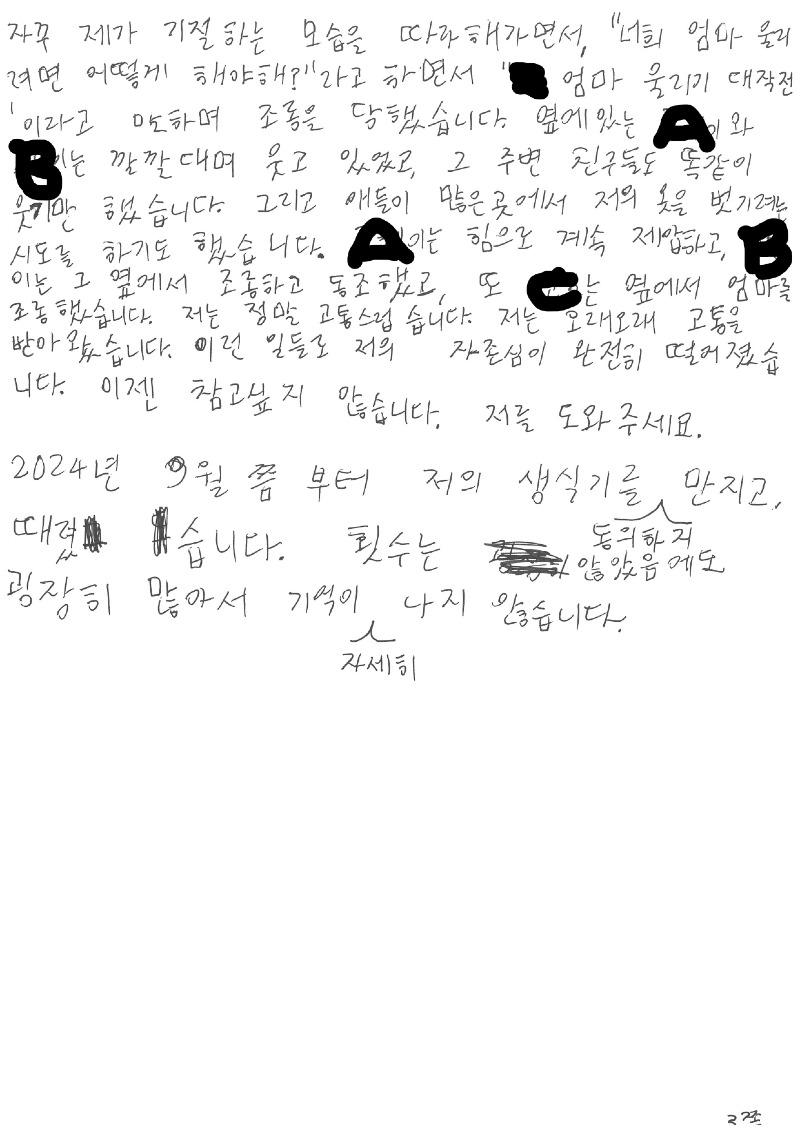 자꾸 제가 기절하는 모습을 따라해가면서, "너희 엄마 울리
려면 어떻게 해야해?"라고 하면서 " 엄마 울리기 대작전
'이라고 하며 조롱을 당했습니다. 옆에있는 A 이와
B 이는 깔깔대며 웃고 있었고, 그 주변 친구들도 똑같이
웃기만 했습니다. 그리고 애들이 많은곳에서 저의 옷을 벗기려는
시도를 하기도 했습니다. A 이는 힘으로 계속 제압하고, B
이는 그 옆에서 조롱하고 동조했고, 또 C 는 옆에서 엄마를
조롱했습니다. 저는 정말 고통스럽습니다. 저는 오래오래 고통을
받아왔습니다. 이런 일들로 저의 자존심이 완전히 떨어졌습
니다. 이젠 참고싶지 않습니다. 저를 도와주세요.
2024년 9월 쯤 부터 저의 생식기를 만지고,
때렸습니다. 횟수는 동의하지
않았음에도
굉장히 많아서 기억이 나지 않습니다.
자세히
2쪽